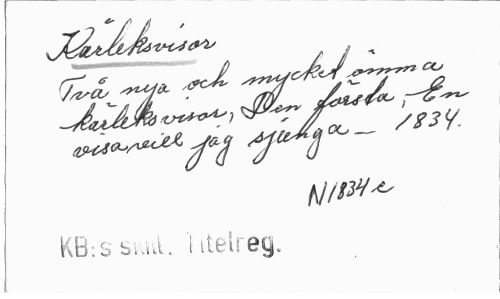 Kärleksvisor
Två nya och mycket ömma
kärleksvisor, Den första, En
visa vill jag sjunga — 1834.
N1834 c
KB:s skill. Titelreg.